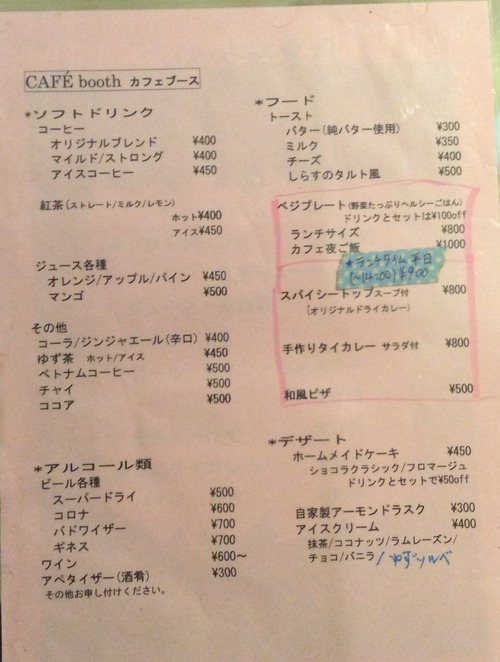 CAFÉ booth カフェブース
*ソフトドリンク
コーヒー
オリジナルブレンド ¥400
マイルド/ストロング ¥400
アイスコーヒー ¥450
紅茶(ストレート/ミルク/レモン)
ホット¥400
アイス¥450
ジュース各種
オレンジ/アップル/パイン ¥450
マンゴ ¥500
その他
コーラ/ジンジャエール(辛口) ¥400
ゆず茶 ホット/アイス ¥450
ベトナムコーヒー ¥500
チャイ ¥500
ココア ¥500
*アルコール類
ビール各種
スーパードライ ¥500
コロナ ¥600
バドワイザー ¥700
ギネス ¥700
ワイン ¥600～
アペタイザー(酒肴) ¥300
その他お申し付けください。
*フード
トースト
バター(純バター使用) ¥300
ミルク ¥350
チーズ ¥400
しらすのタルト風 ¥500
ベジプレート(野菜たっぷりヘルシーごはん)
ドリンクとセットは¥100off
ランチサイズ ¥800
カフェ夜ご飯 ¥1000
★ランチタイム 平日
(~14:00) ¥900
スパイシートップスープ付 ¥800
(オリジナルドライカレー)
手作りタイカレー サラダ付 ¥800
和風ピザ ¥500
*デザート
ホームメイドケーキ ¥450
ショコラクラシック/フロマージュ
ドリンクとセットで¥50off
自家製アーモンドラスク ¥300
アイスクリーム ¥400
抹茶/ココナッツ/ラムレーズン/
チョコ/バニラ / ゆずソルベ